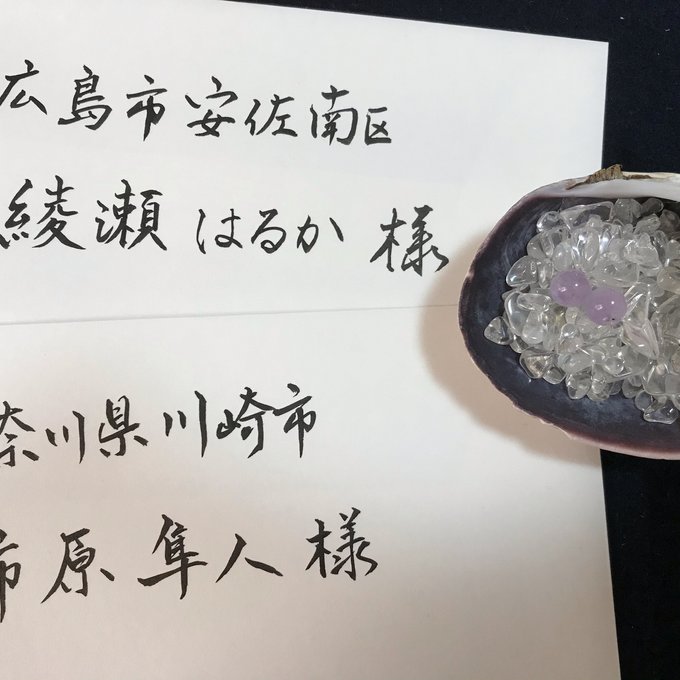 広島市安佐南区
綾瀬はるか 様
奈川県川崎市
市原隼人 様